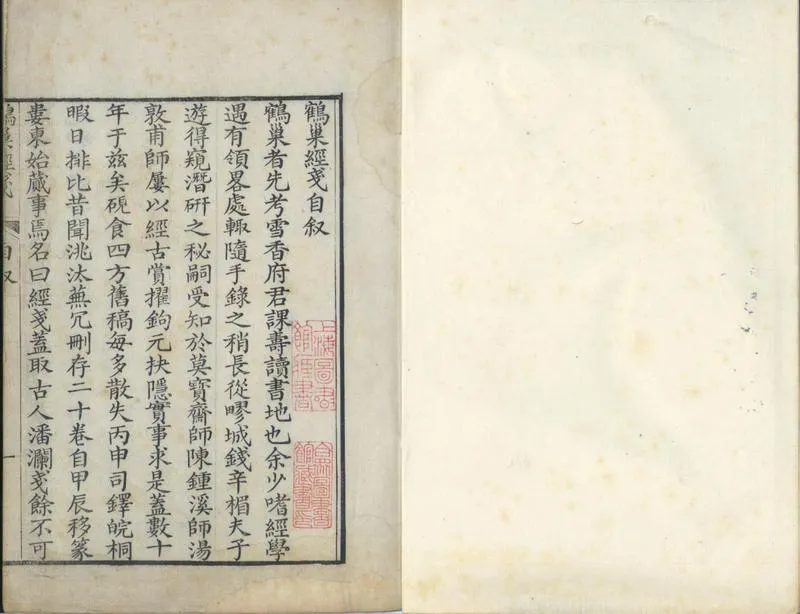 鶴巢經箋自叙
鶴巢者先考雪香府君課壽讀書地也余少嗜經學
遇有領畧處輙隨手錄之稍長從疁城錢辛楣夫子
遊得窺潛研之秘嗣受知於莫寶齋師陳鍾溪師湯
敦甫師屢以經古賞擢鉤元抉隱實事求是蓋數十
年于兹矣硯食四方舊稿每多散失丙申司鐸皖桐
暇日排比昔聞洮汰蕪冗刪存二十卷自甲辰移篆
婁東始蕆事焉名曰經箋蓋取古人潘瀾戔餘不可
鶴巢經箋
自叙
一
上海圖書館藏書
合衆圖書館藏書